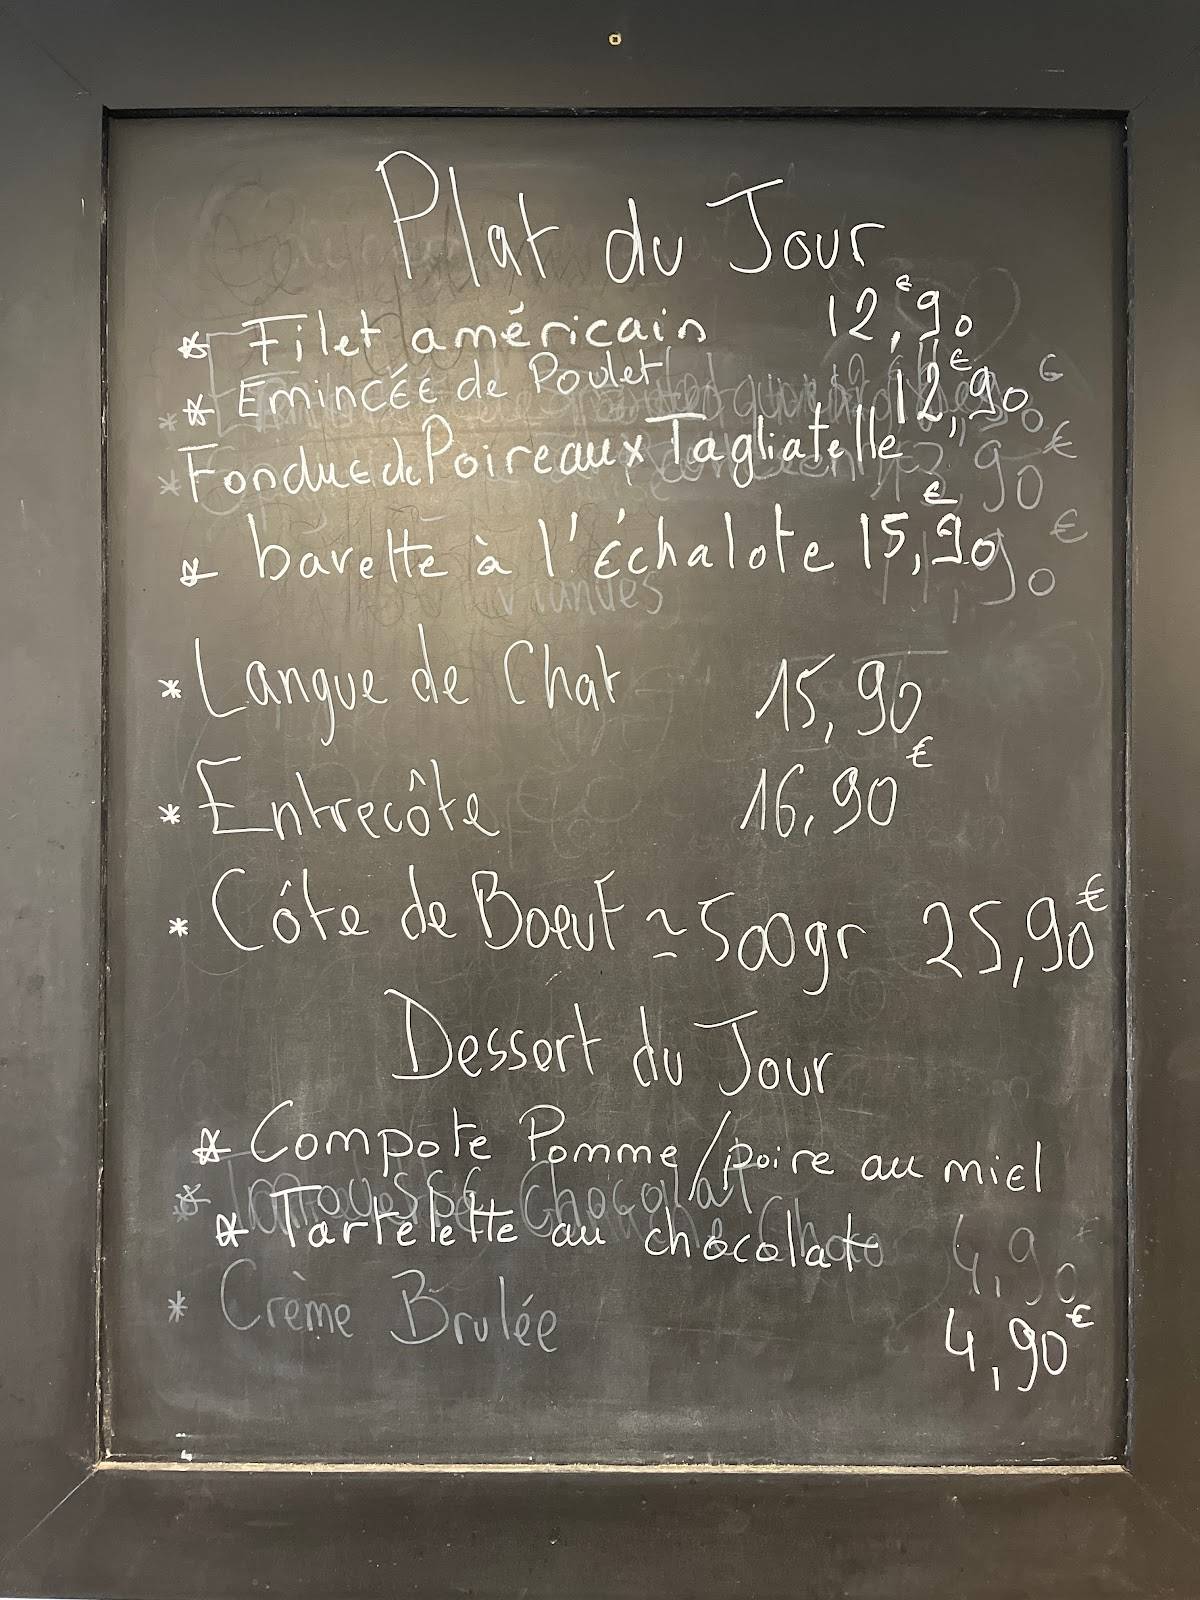 Plat du Jour
* Filet américain 12,90€
* Emincée de Poulet 12,90€
Fondue de Poireaux Tagliatelle
* bavette à l'échalote 15,90€
viandes
* Langue de Chat 15,90
* Entrecôte 16,90€
* Côte de Boeuf ≃ 500gr 25,90€
Dessert du Jour
* Compote Pomme/poire au miel
* Tartelette au chocolat
* Crème Brulée 4,90€